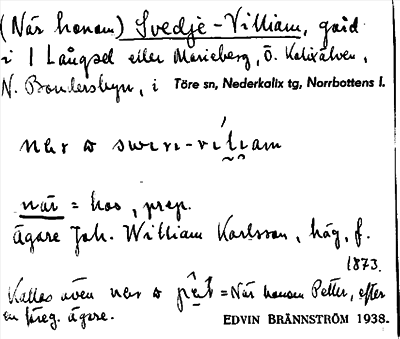 (När honom) Svedje-Villiam, gård
i 1 Långsel eller Marieberg, Ö. Kalixälven,
N. Bondersbyn, i Töre sn, Nederkalix tg, Norrbottens l.
när = hos, prep.
Ägare Joh. William Karlsson, häg, f.
1873.
Kallas även = När honom Petter, efter
en föreg. ägare. EDVIN BRÄNNSTRÖM 1938.